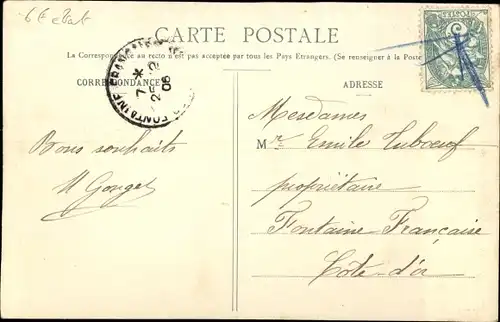 CARTE POSTALE
La Correspondance au recto n'est pas acceptée par tous les Pays Etrangers. (Se renseigner à la Poste
CORRESPONDANCE
ADRESSE
7 *
25 -12
06
FONTAINE FRANÇAISE
Bons souhaits
Mesdames
M Emile
propriétaire
Fontaine Française
Côte-d'or